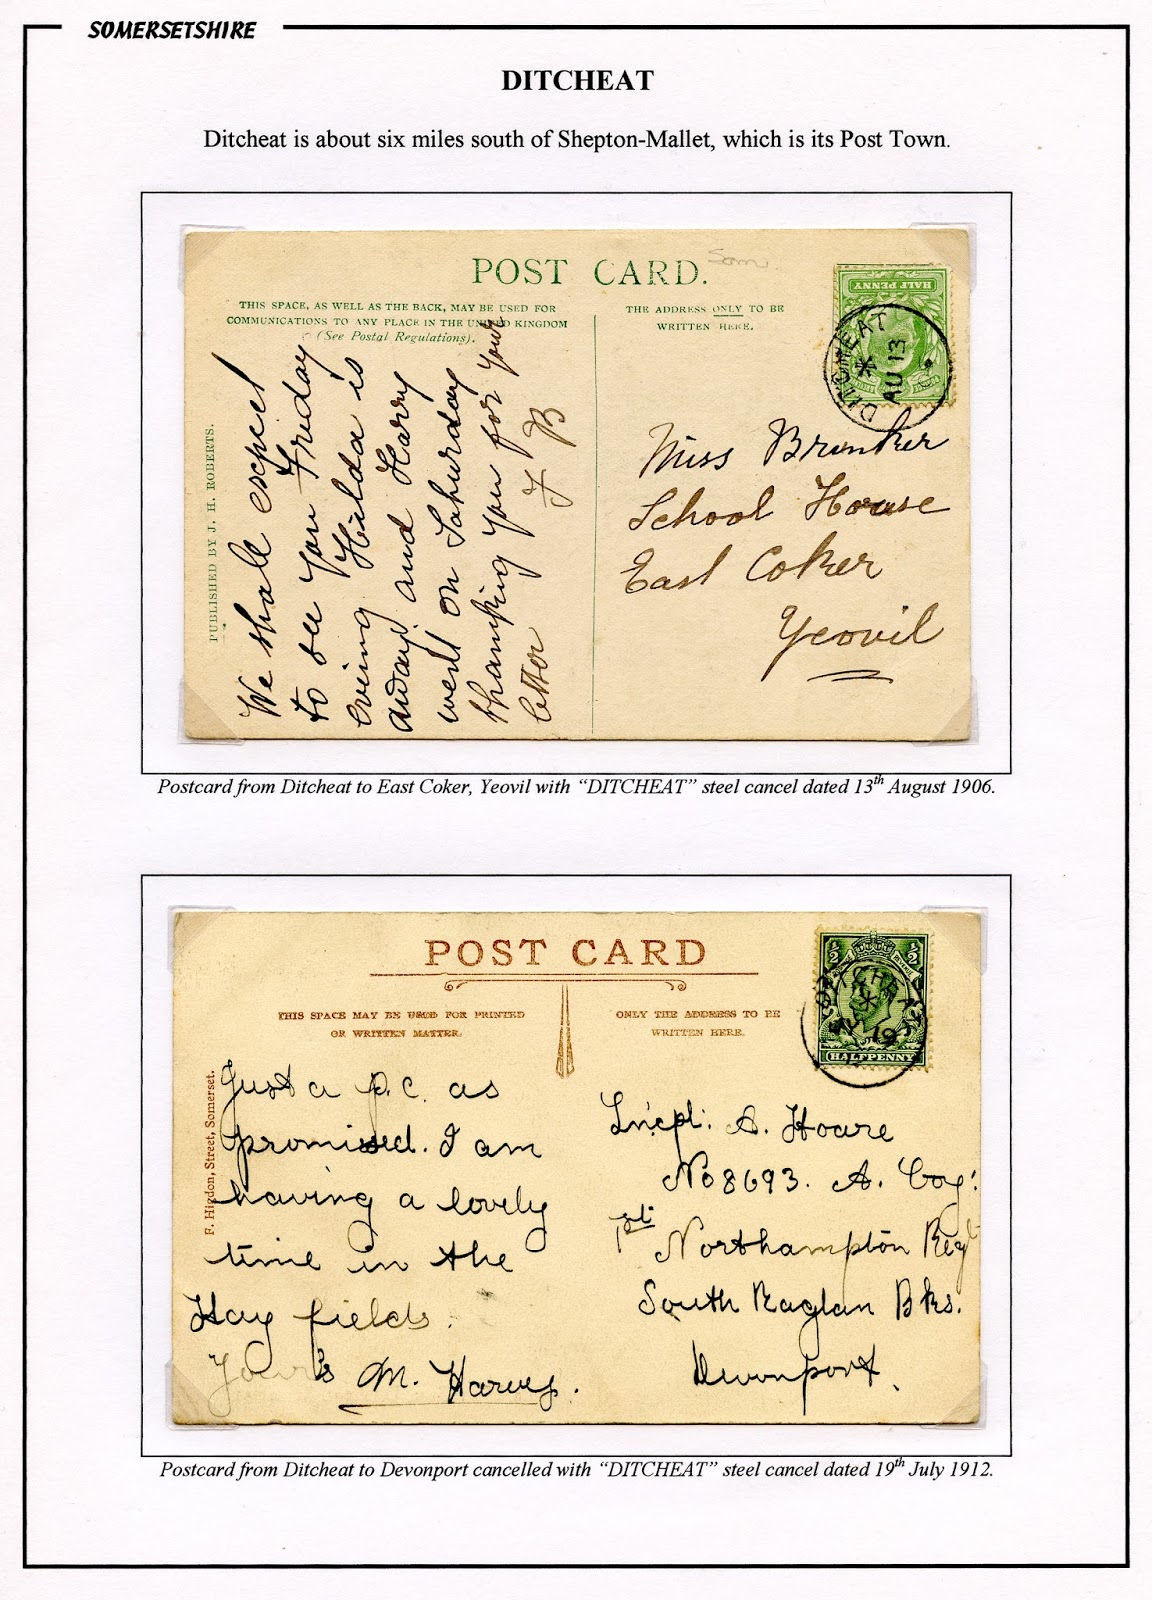 SOMERSETSHIRE
DITCHEAT
Ditcheat is about six miles south of Shepton-Mallet, which is its Post Town.
POST CARD.
Som
THIS SPACE, AS WELL AS THE BACK, MAY BE USED FOR
COMMUNICATIONS TO ANY PLACE IN THE UNITED KINGDOM
(See Postal Regulations).
THE ADDRESS ONLY TO BE
WRITTEN HERE.
HALF PENNY
DITCHEAT
AU 13
PUBLISHED BY J. H. ROBERTS.
We shall expect
to see you Friday
evening Hilda is
away and Harry
went on Saturday
thanking you for your
letter J B
Miss Brunker
School House
East Coker
Yeovil
Postcard from Ditcheat to East Coker, Yeovil with “DITCHEAT” steel cancel dated 13th August 1906.
POST CARD
THIS SPACE MAY BE USED FOR PRINTED
OR WRITTEN MATTER.
ONLY THE ADDRESS TO BE
WRITTEN HERE.
½ ½
DITCHEAT
19
HALFPENNY
F. Higdon, Street, Somerset.
Just a p.c. as
promised. I am
having a lovely
time in the
Hay fields.
Your's M. Harvey.
A. Hoare
No 8693. A. Coy:
1st Northampton Regt
South Raglan Bks.
Devonport.
Postcard from Ditcheat to Devonport cancelled with “DITCHEAT” steel cancel dated 19th July 1912.